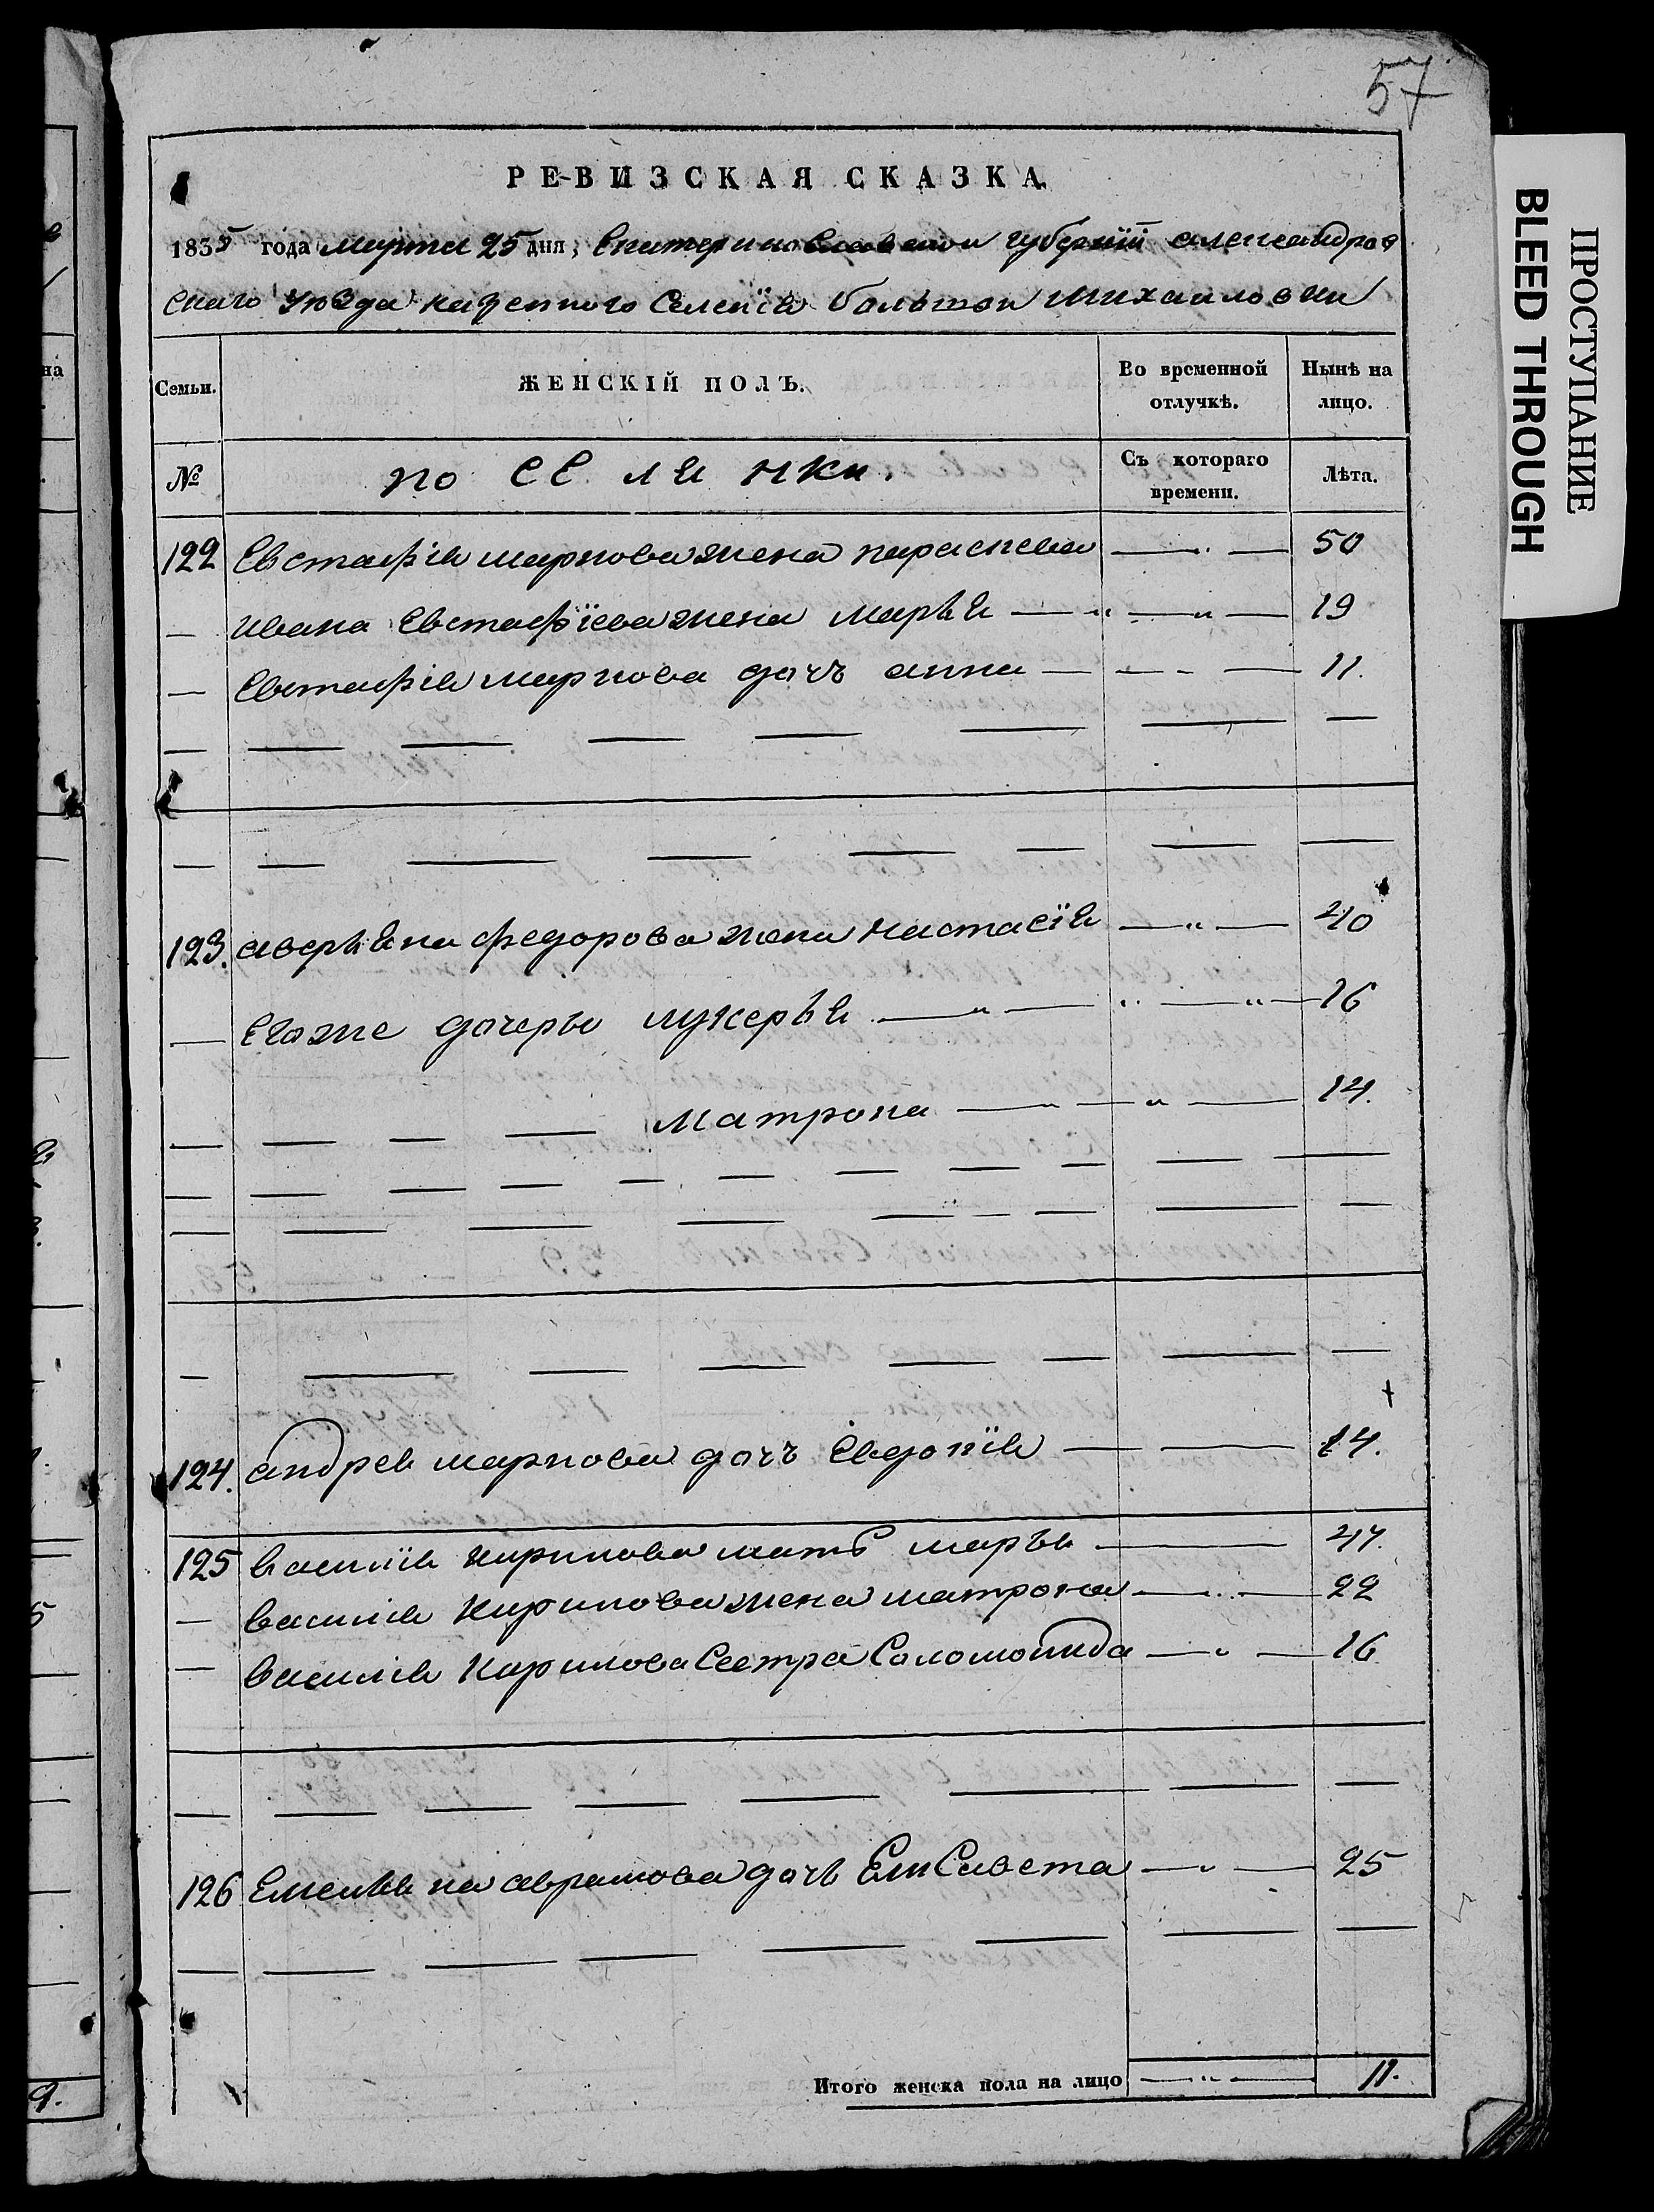 57
РЕВИЗСКАЯ СКАЗКА
1835 года марта 25 дня, Екатеринославской губернїи александров
скаго уезда казенного Селенїя большой Михаиловки
Семьи. ЖЕНСКІЙ ПОЛЪ. Во временной отлучкѣ. Нынѣ на лицо.
№ поселянки. Съ котораго времени. Лѣта.
122 Евстафія маркова жена параскева — 50
— ивана Евстафїева жена марья — " — " — 19
— Евстафія маркова дочъ анна — 11.
123. аверьяна федорова жена настасїя — " — 40
— Егоже дочеры лукерья — " — " — " — 16
— — — — Матрона — " — " — 14.
124. андрея маркова дочъ Евдокїя — 14.
125 василїя кирилова мать марья — 47.
— василія кирилова жена матрона — 22
— василія кирилова Сестра Соломонида — " — 16
126 Емельяна аврамова дочь Елисавета — " — 25
Итого женска пола на лицо — " — 11.
ПРОСТУПАНИЕ
BLEED THROUGH